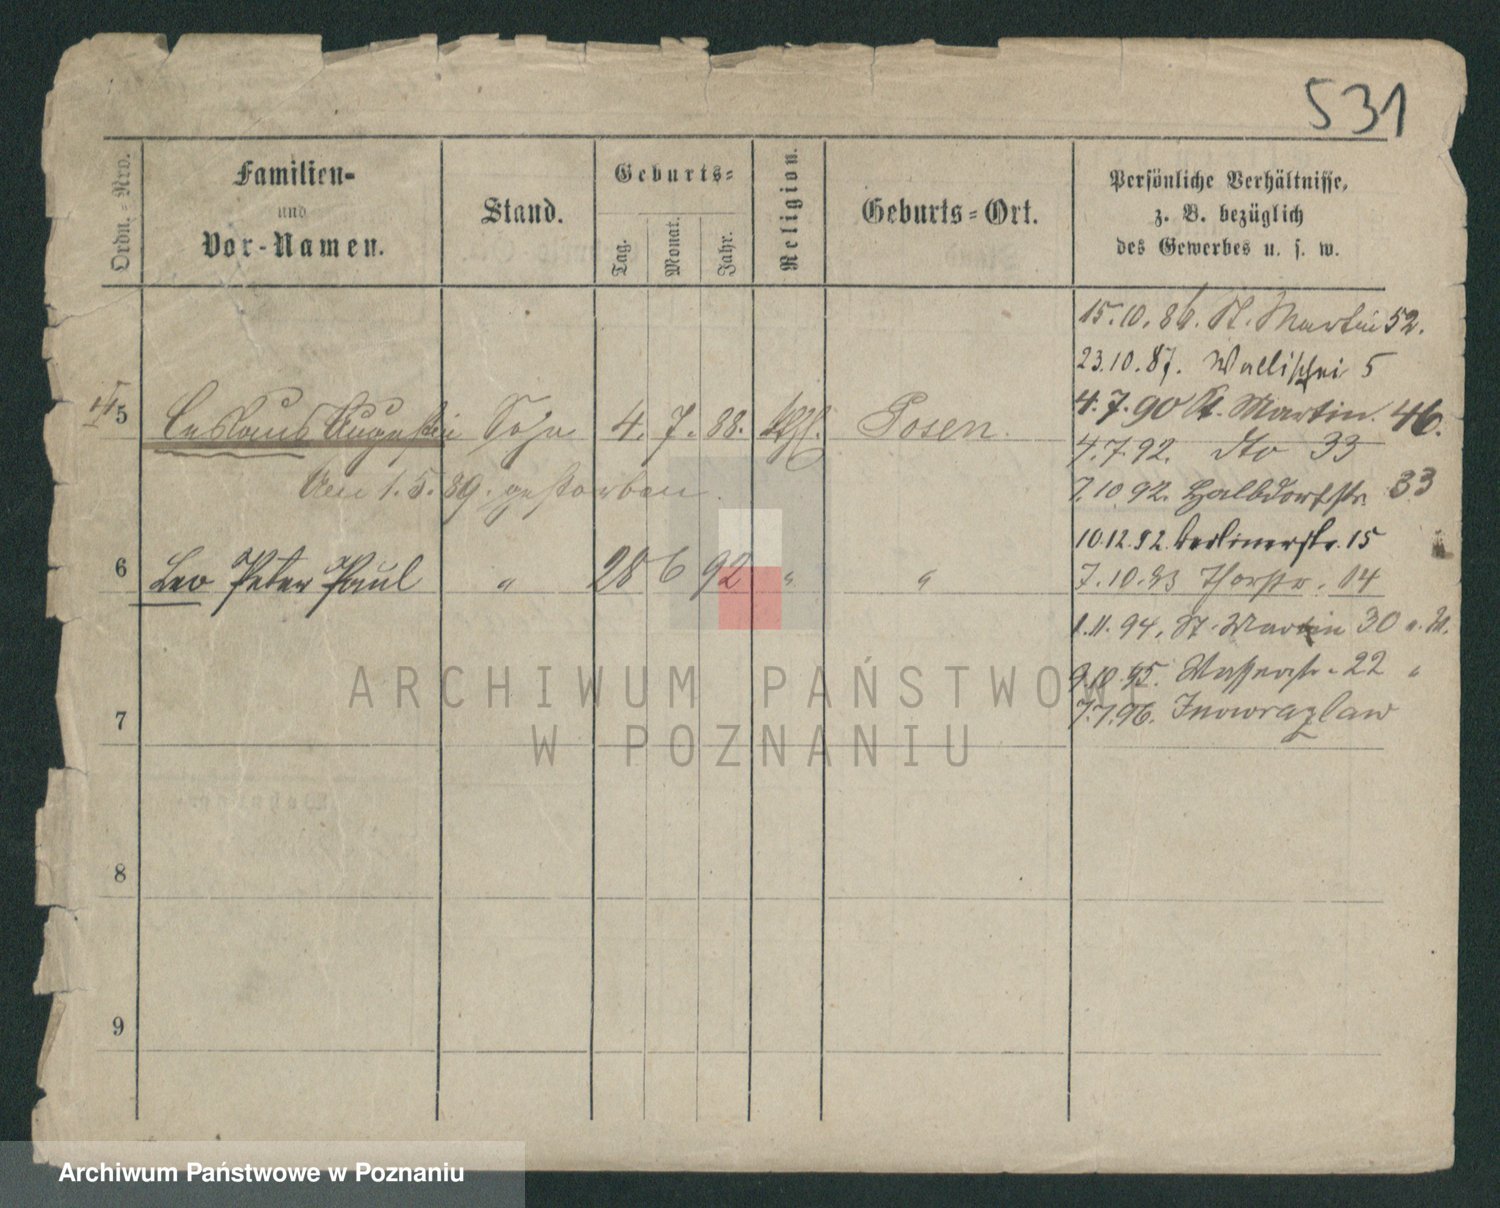 531
Ordn.-Nro.
Familien-
und
Vor-Namen.
Stand.
Geburts-
Tag.
Monat.
Jahr.
Religion.
Geburts-Ort.
Persönliche Verhältnisse,
z. B. bezüglich
des Gewerbes u. s. w.
15.10.86. St. Martin 52.
23.10.87. Wallischei 5
5 Ceslaus Augustin Sohn 4. 7. 88. kth. Posen.
4.7.90 St. Martin. 46.
4.7.92. dto 33
Am 1.5.89. gestorben.
7.10.92. Halbdorfstr. 33
10.12.92. Berlinerstr. 15
6 Leo Peter Paul " 28 6 92 " "
7.10.93 Thorstr. 14
1.11.94. St. Martin 30
9.10.95. Wasserstr. 22 "
7
7.7.96. Inowrazlaw
8
9
ARCHIWUM PAŃSTWOWE
W POZNANIU
Archiwum Państwowe w Poznaniu